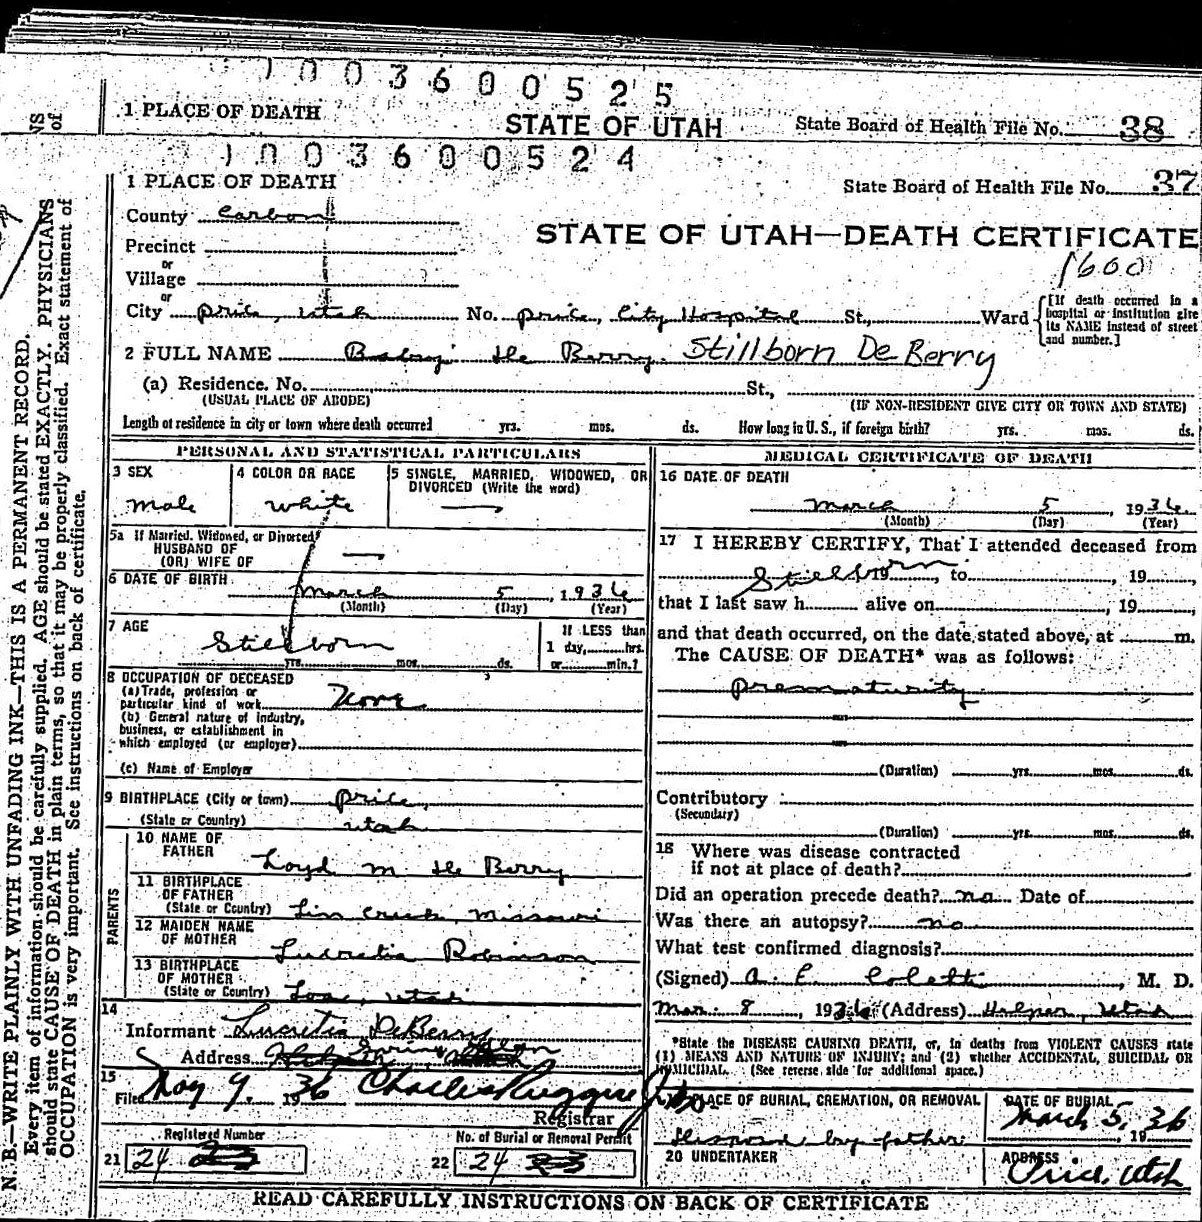 1003600525
1 PLACE OF DEATH STATE OF UTAH State Board of Health File No. 38
1003600524
1 PLACE OF DEATH State Board of Health File No. 37
County Carbon
STATE OF UTAH—DEATH CERTIFICATE
Precinct
1600
or
Village
or
City Price, Utah No. Price, City Hospital St., Ward [If death occurred in a hospital or institution give its NAME instead of street and number.]
2 FULL NAME Baby De Berry Stillborn DeBerry
(a) Residence. No. St.,
(USUAL PLACE OF ABODE) (IF NON-RESIDENT GIVE CITY OR TOWN AND STATE)
Length of residence in city or town where death occurred yrs. mos. ds. How long in U. S., if foreign birth? yrs. mos. ds.
PERSONAL AND STATISTICAL PARTICULARS
3 SEX 4 COLOR OR RACE 5 SINGLE, MARRIED, WIDOWED, OR DIVORCED (Write the word)
Male White —
5a If Married, Widowed, or Divorced
HUSBAND OF
(OR) WIFE OF —
6 DATE OF BIRTH
March 5, 1936
(Month) (Day) (Year)
7 AGE If LESS than
Stillborn 1 day, hrs.
yrs. mos. ds. or min.?
8 OCCUPATION OF DECEASED
(a) Trade, profession or
particular kind of work None
(b) General nature of industry,
business, or establishment in
which employed (or employer)
(c) Name of Employer
9 BIRTHPLACE (City or town) Price,
(State or Country) Utah
PARENTS
10 NAME OF
FATHER Loyd M De Berry
11 BIRTHPLACE
OF FATHER
(State or Country) Linn Creek, Missouri
12 MAIDEN NAME
OF MOTHER Lucretia Robinson
13 BIRTHPLACE
OF MOTHER
(State or Country) Loa, Utah
14
Informant Lucretia DeBerry
Address Spring Glen
15
Filed May 9, 1936 Charles Ruggeri Jr
Registrar
Registered Number No. of Burial or Removal Permit
21 24 22 24
MEDICAL CERTIFICATE OF DEATH
16 DATE OF DEATH
March 5 1936
(Month) (Day) (Year)
17 I HEREBY CERTIFY, That I attended deceased from
Stillborn 19, to, 19,
that I last saw h alive on, 19,
and that death occurred, on the date stated above, at m.
The CAUSE OF DEATH* was as follows:
Prematurity
(Duration) yrs. mos. ds.
Contributory
(Secondary)
(Duration) yrs. mos. ds.
18 Where was disease contracted
if not at place of death?
Did an operation precede death? no Date of
Was there an autopsy? no
What test confirmed diagnosis?
(Signed) A. E. Coletti, M. D.
Mar. 8 1936 (Address) Helper, Utah
*State the DISEASE CAUSING DEATH, or, in deaths from VIOLENT CAUSES state
(1) MEANS AND NATURE OF INJURY; and (2) whether ACCIDENTAL, SUICIDAL OR
HOMICIDAL. (See reverse side for additional space.)
PLACE OF BURIAL, CREMATION, OR REMOVAL DATE OF BURIAL
Disposed by father March 5, 36
19
20 UNDERTAKER ADDRESS
Price, Utah
READ CAREFULLY INSTRUCTIONS ON BACK OF CERTIFICATE
NS
of
N. B.—WRITE PLAINLY WITH UNFADING INK—THIS IS A PERMANENT RECORD.
Every item of information should be carefully supplied. AGE should be stated EXACTLY. PHYSICIANS
should state CAUSE OF DEATH in plain terms, so that it may be properly classified. Exact statement of
OCCUPATION is very important. See instructions on back of certificate.